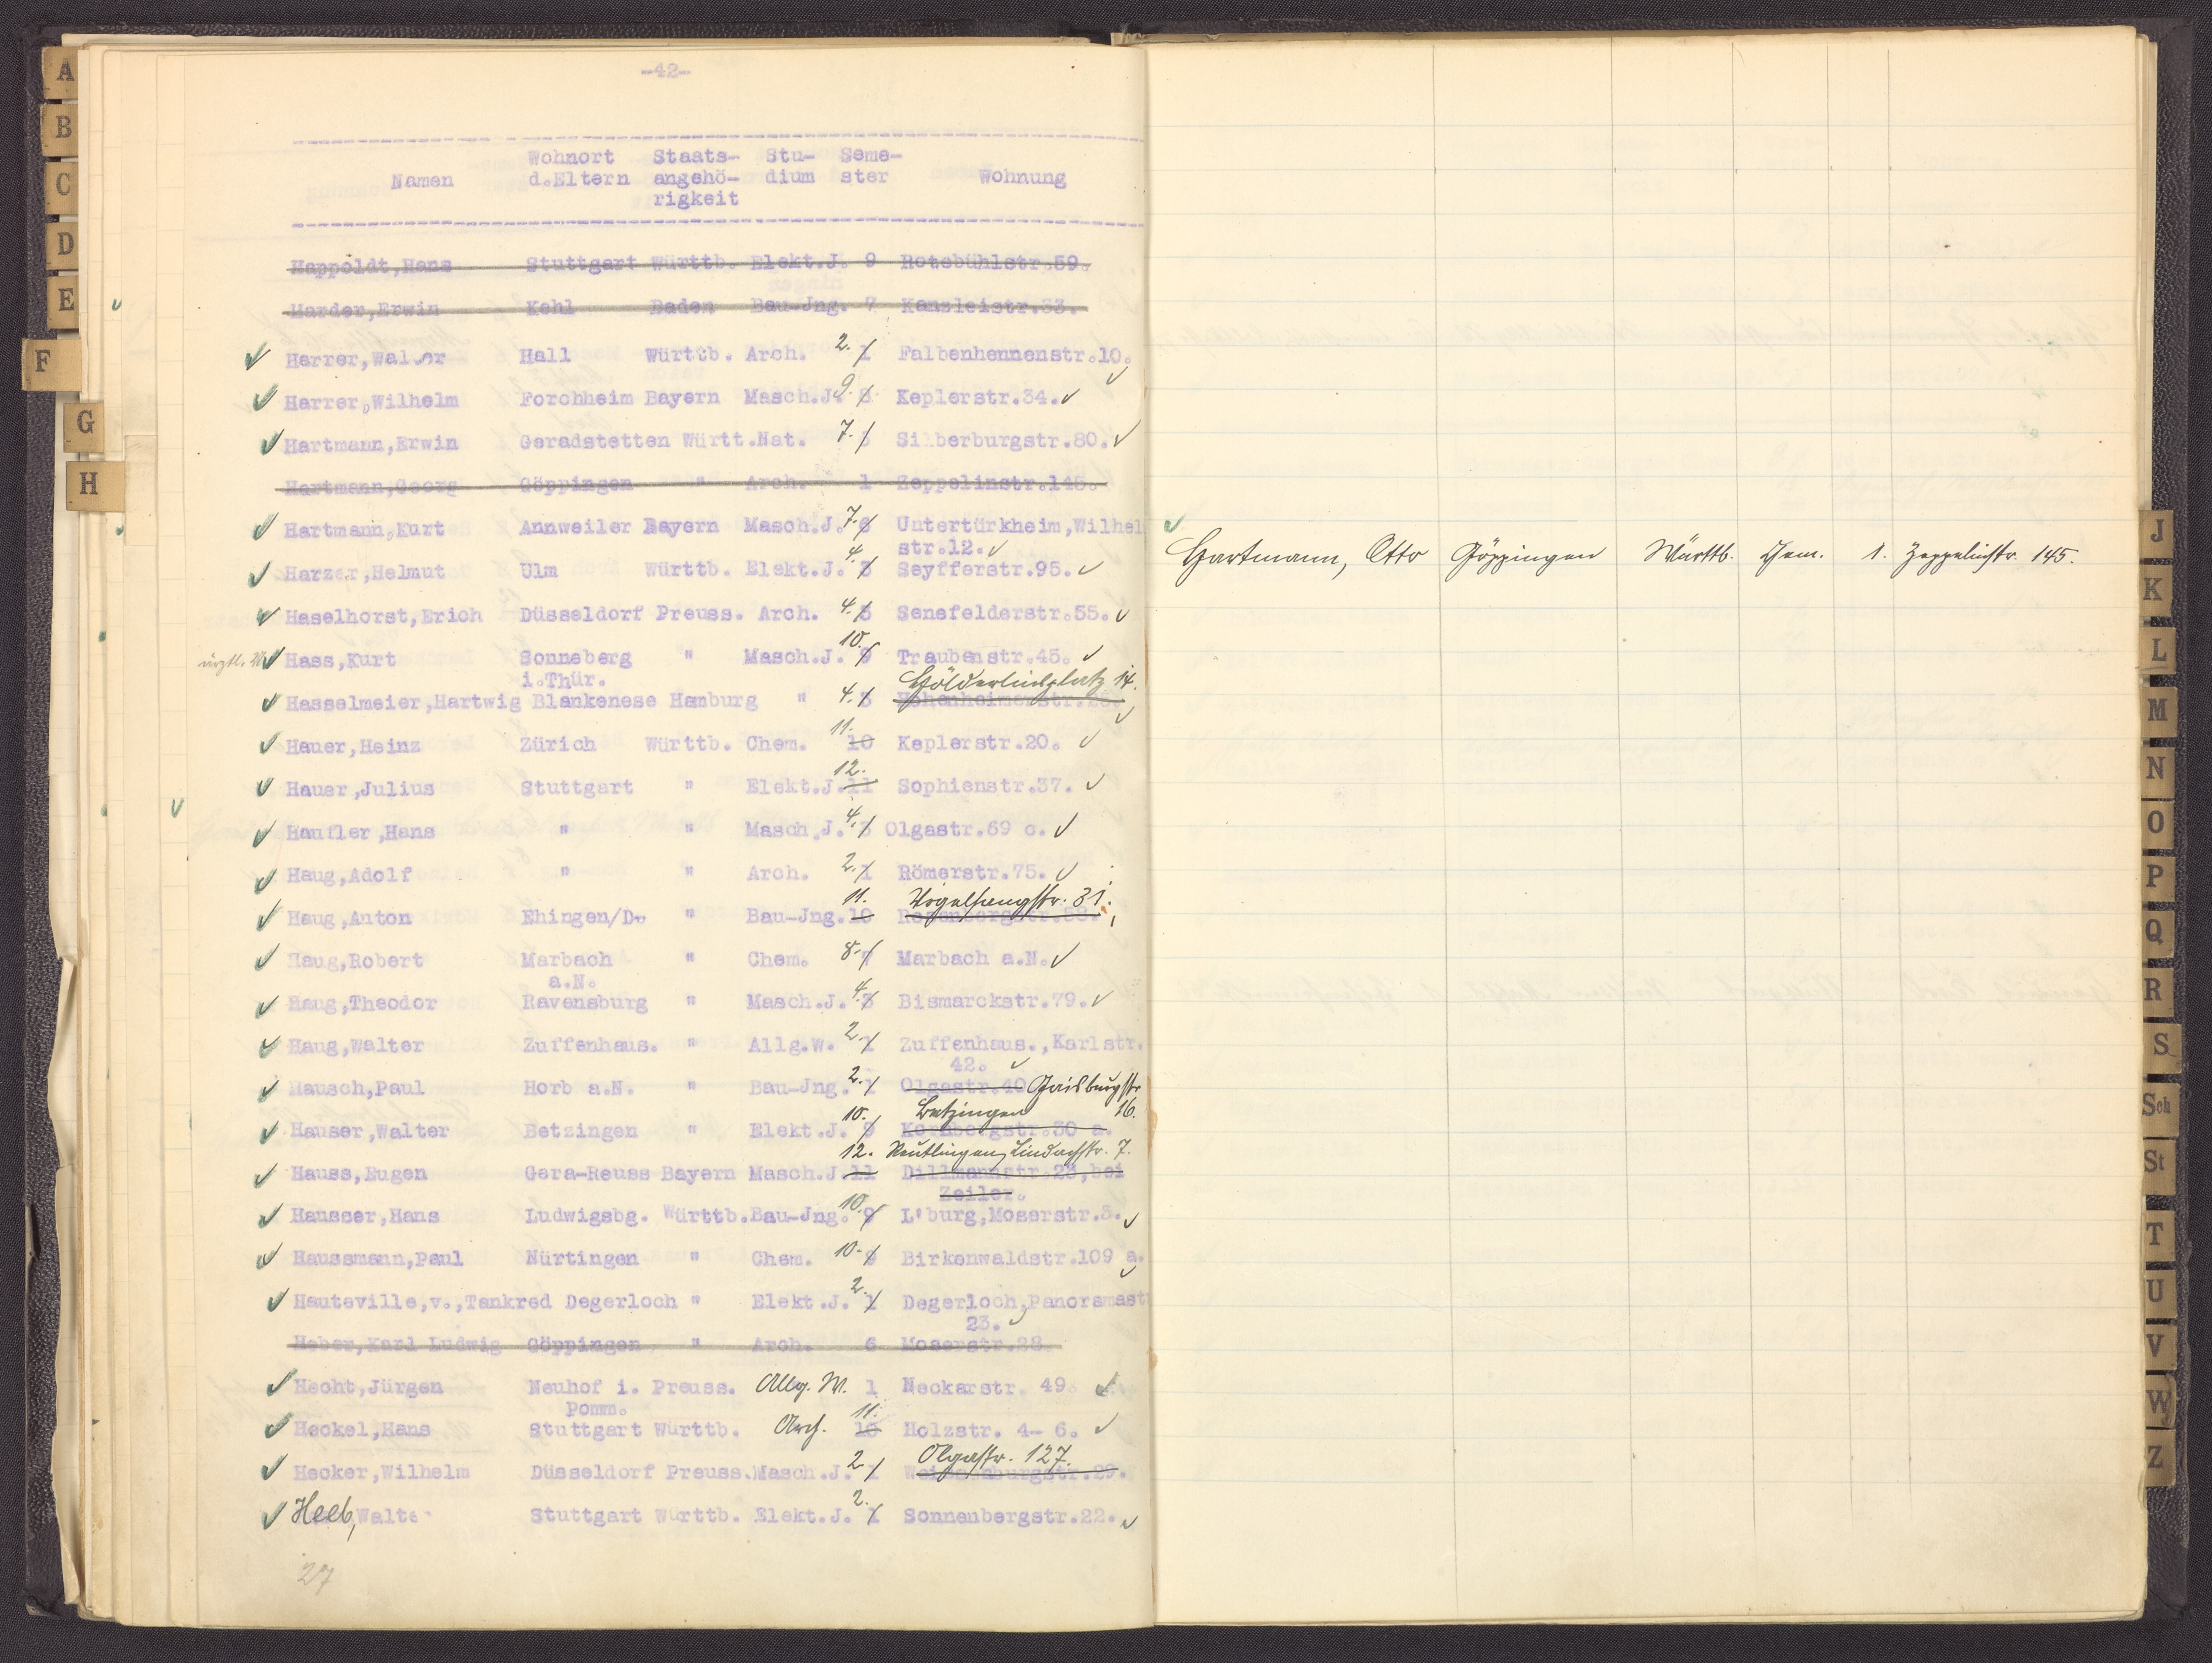 -42-
Namen Wohnort d.Eltern Staats-angehö-rigkeit Stu-dium Seme-ster Wohnung
Happoldt,Hans Stuttgart Württb. Elekt.J. 9 Rotebühlstr.59.
Harder,Erwin Kehl Baden Bau-Jng. 7 Kanzleistr.33.
Harrer,Walter Hall Württb. Arch. 2. 1 Falbenhennenstr.10.
Harrer,Wilhelm Forchheim Bayern Masch.J. 9. 8 Keplerstr.34.
Hartmann,Erwin Geradstetten Württ.Nat. 7. Silberburgstr.80.
Hartmann,Georg Göppingen " Arch. 1 Zeppelinstr.145.
Hartmann,Kurt Annweiler Bayern Masch.J. 7. 6 Untertürkheim,Wilhel
str.12.
Harzer,Helmut Ulm Württb. Elekt.J. 4. 3 Seyfferstr.95.
Haselhorst,Erich Düsseldorf Preuss. Arch. 4. 3 Senefelderstr.55.
ärztl. Hass,Kurt Sonneberg " Masch.J. 10. 9 Traubenstr.45.
i.Thür. Hölderlinplatz 14.
Hasselmeier,Hartwig Blankenese Hamburg " 4. 3 Hohenheimerstr.
Hauer,Heinz Zürich Württb. Chem. 11. 10 Keplerstr.20.
Hauer,Julius Stuttgart " Elekt.J. 12. 11 Sophienstr.37.
Haufler,Hans " " Masch.J. 4. 3 Olgastr.69 c.
Haug,Adolf " " Arch. 2. 1 Römerstr.75.
Vogelsangstr. 31.
Haug,Anton Ehingen/D. " Bau-Jng. 11. 10
Haug,Robert Marbach " Chem. 8. 7 Marbach a.N.
a.N.
Haug,Theodor Ravensburg " Masch.J. 4. 3 Bismarckstr.79.
Haug,Walter Zuffenhaus. " Allg.W. 2. 1 Zuffenhaus.,Karlstr.
42.
Hausch,Paul Horb a.N. " Bau-Jng. 2. 1 Olgastr.40 Gaisburgstr.
Betzingen 16.
Hauser,Walter Betzingen " Elekt.J. 10. 9 Kornbergstr.30 a.
Reutlingen, Lindachstr. 7.
Hauss,Eugen Gera-Reuss Bayern Masch.J. 12. 11 Dillmannstr.23,bei
Zeiler.
Hausser,Hans Ludwigsbg. Württb.Bau-Jng. 10. 9 L'burg,Moserstr.3.
Haussmann,Paul Nürtingen " Chem. 10. 9 Birkenwaldstr.109 a.
Hauteville,v.,Tankred Degerloch " Elekt.J. 2. 1 Degerloch,Panoramast
23.
Heber,Karl Ludwig Göppingen " Arch. 6 Moserstr.28
Hecht,Jürgen Neuhof i. Preuss. Allg. W. 1 Neckarstr. 49
Pomm.
Heckel,Hans Stuttgart Württb. Arch. 11. 10 Holzstr. 4- 6.
Olgastr. 127.
Hecker,Wilhelm Düsseldorf Preuss.Masch.J. 2. 1 Weissenburgstr.29.
Heeb, Walte Stuttgart Württb. Elekt.J. 2. 1 Sonnenbergstr.22.
27
Hartmann, Otto Göppingen Württb. Chem. 1. Zeppelinstr. 145.
A
B
C
D
E
F
G
H
J
K
L
M
N
O
P
Q
R
S
Sch
St
T
U
V
W
Z